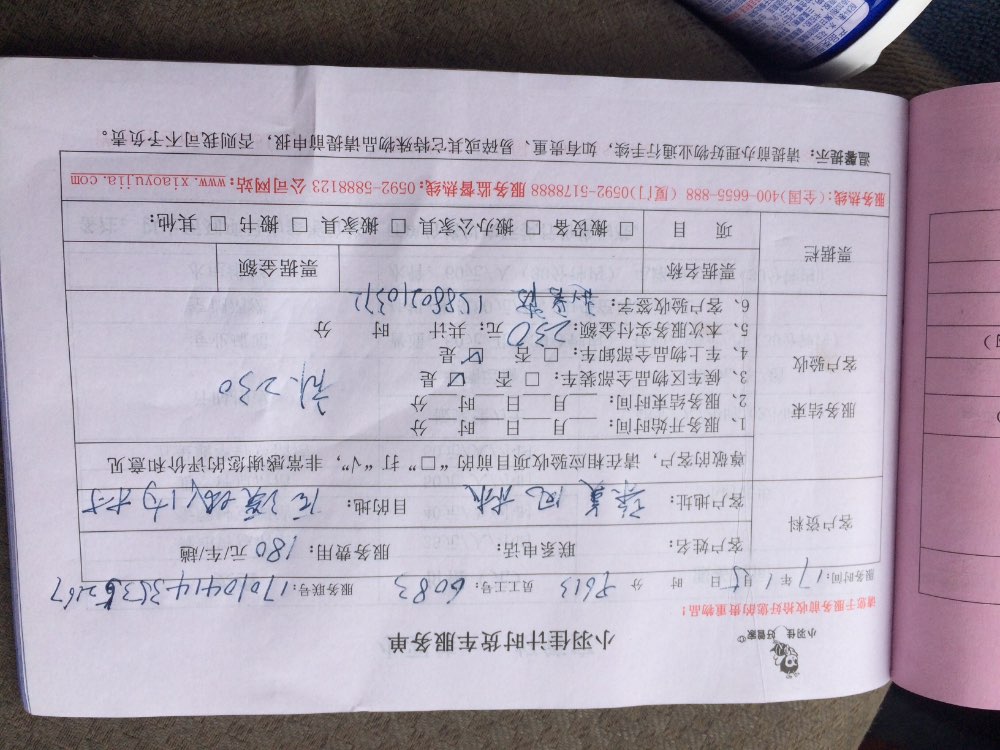 小羽佳 好管家
小羽佳计时货车服务单
请您于服务前收拾好您的贵重物品！
服务时间：17年1月5日 时 分 员工工号：6083 服务联号：
客户资料
客户姓名： 联系电话： 服务费用：180元/车/趟
客户地址： 目的地：
尊敬的客户，请在相应验收项目前的“□”打“√”，非常感谢您的评价和意见
服务结束
客户验收
1、服务开始时间： 月 日 时 分
2、服务结束时间： 月 日 时 分
3、候车区物品全部装车：□ 否 ☑ 是
4、车上物品全部卸车：□ 否 ☑ 是
5、本次服务实付金额：230元；共计 时 分
6、客户验收签字： 15880210372
230
票据栏
票据名称 票据金额
项 目 □ 搬设备 □ 搬办公家具 □ 搬家具 □ 搬书 □ 其他：
服务热线：(全国)400-6655-888 (厦门)0592-5178888 服务监督热线：0592-5888123 公司网站：www.xiaoyujia.com
温馨提示：请提前办理好物业通行手续，如有贵重、易碎或其它特殊物品请提前申报，否则我司不予负责。